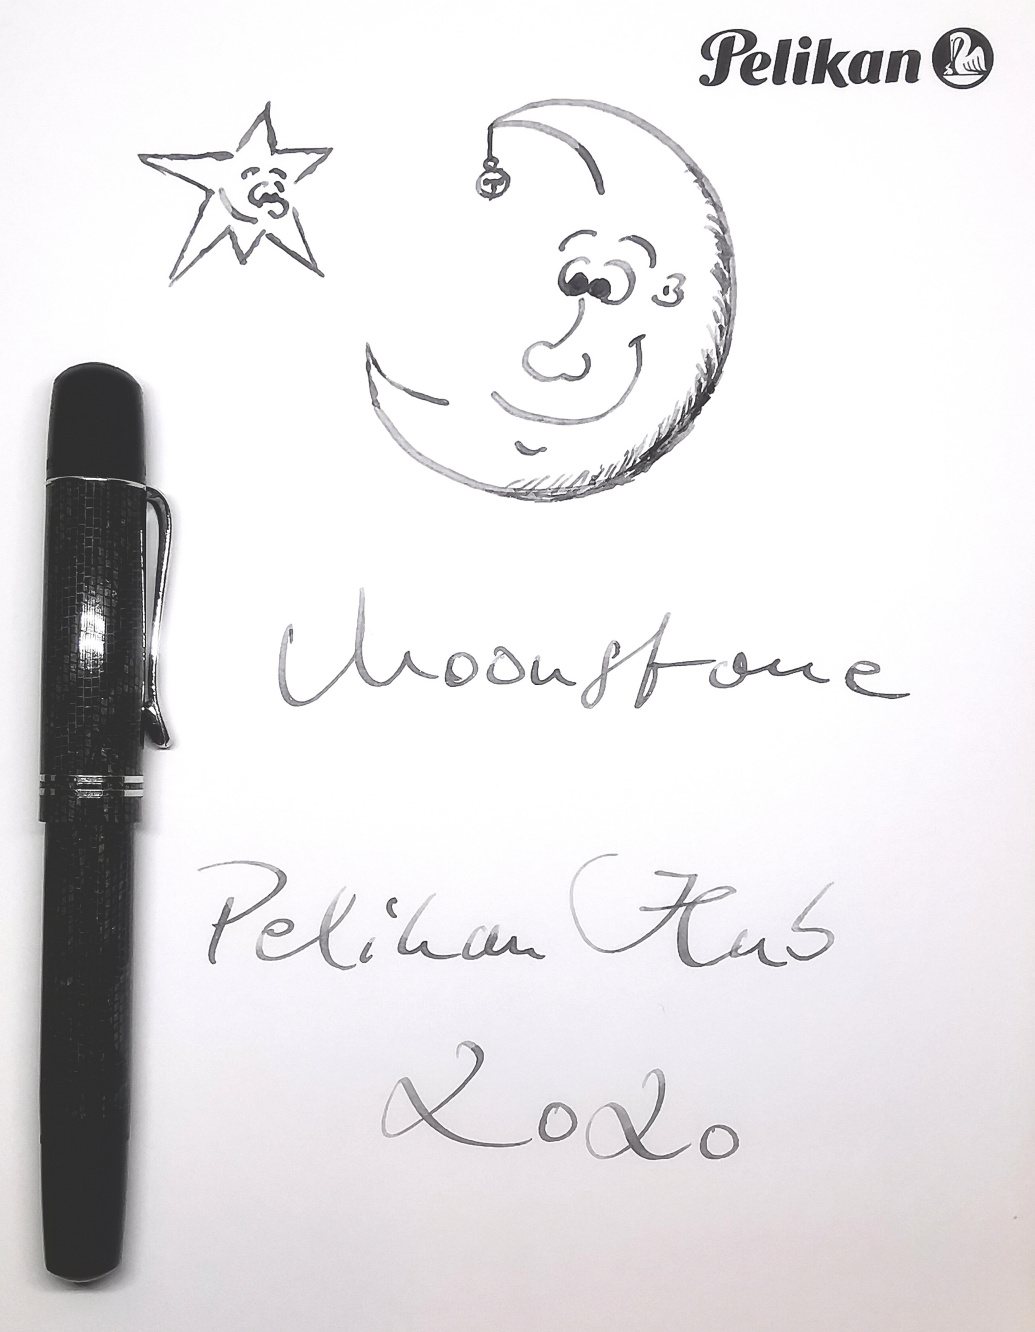 Pelikan
Moonstone
Pelikan Hub
2020